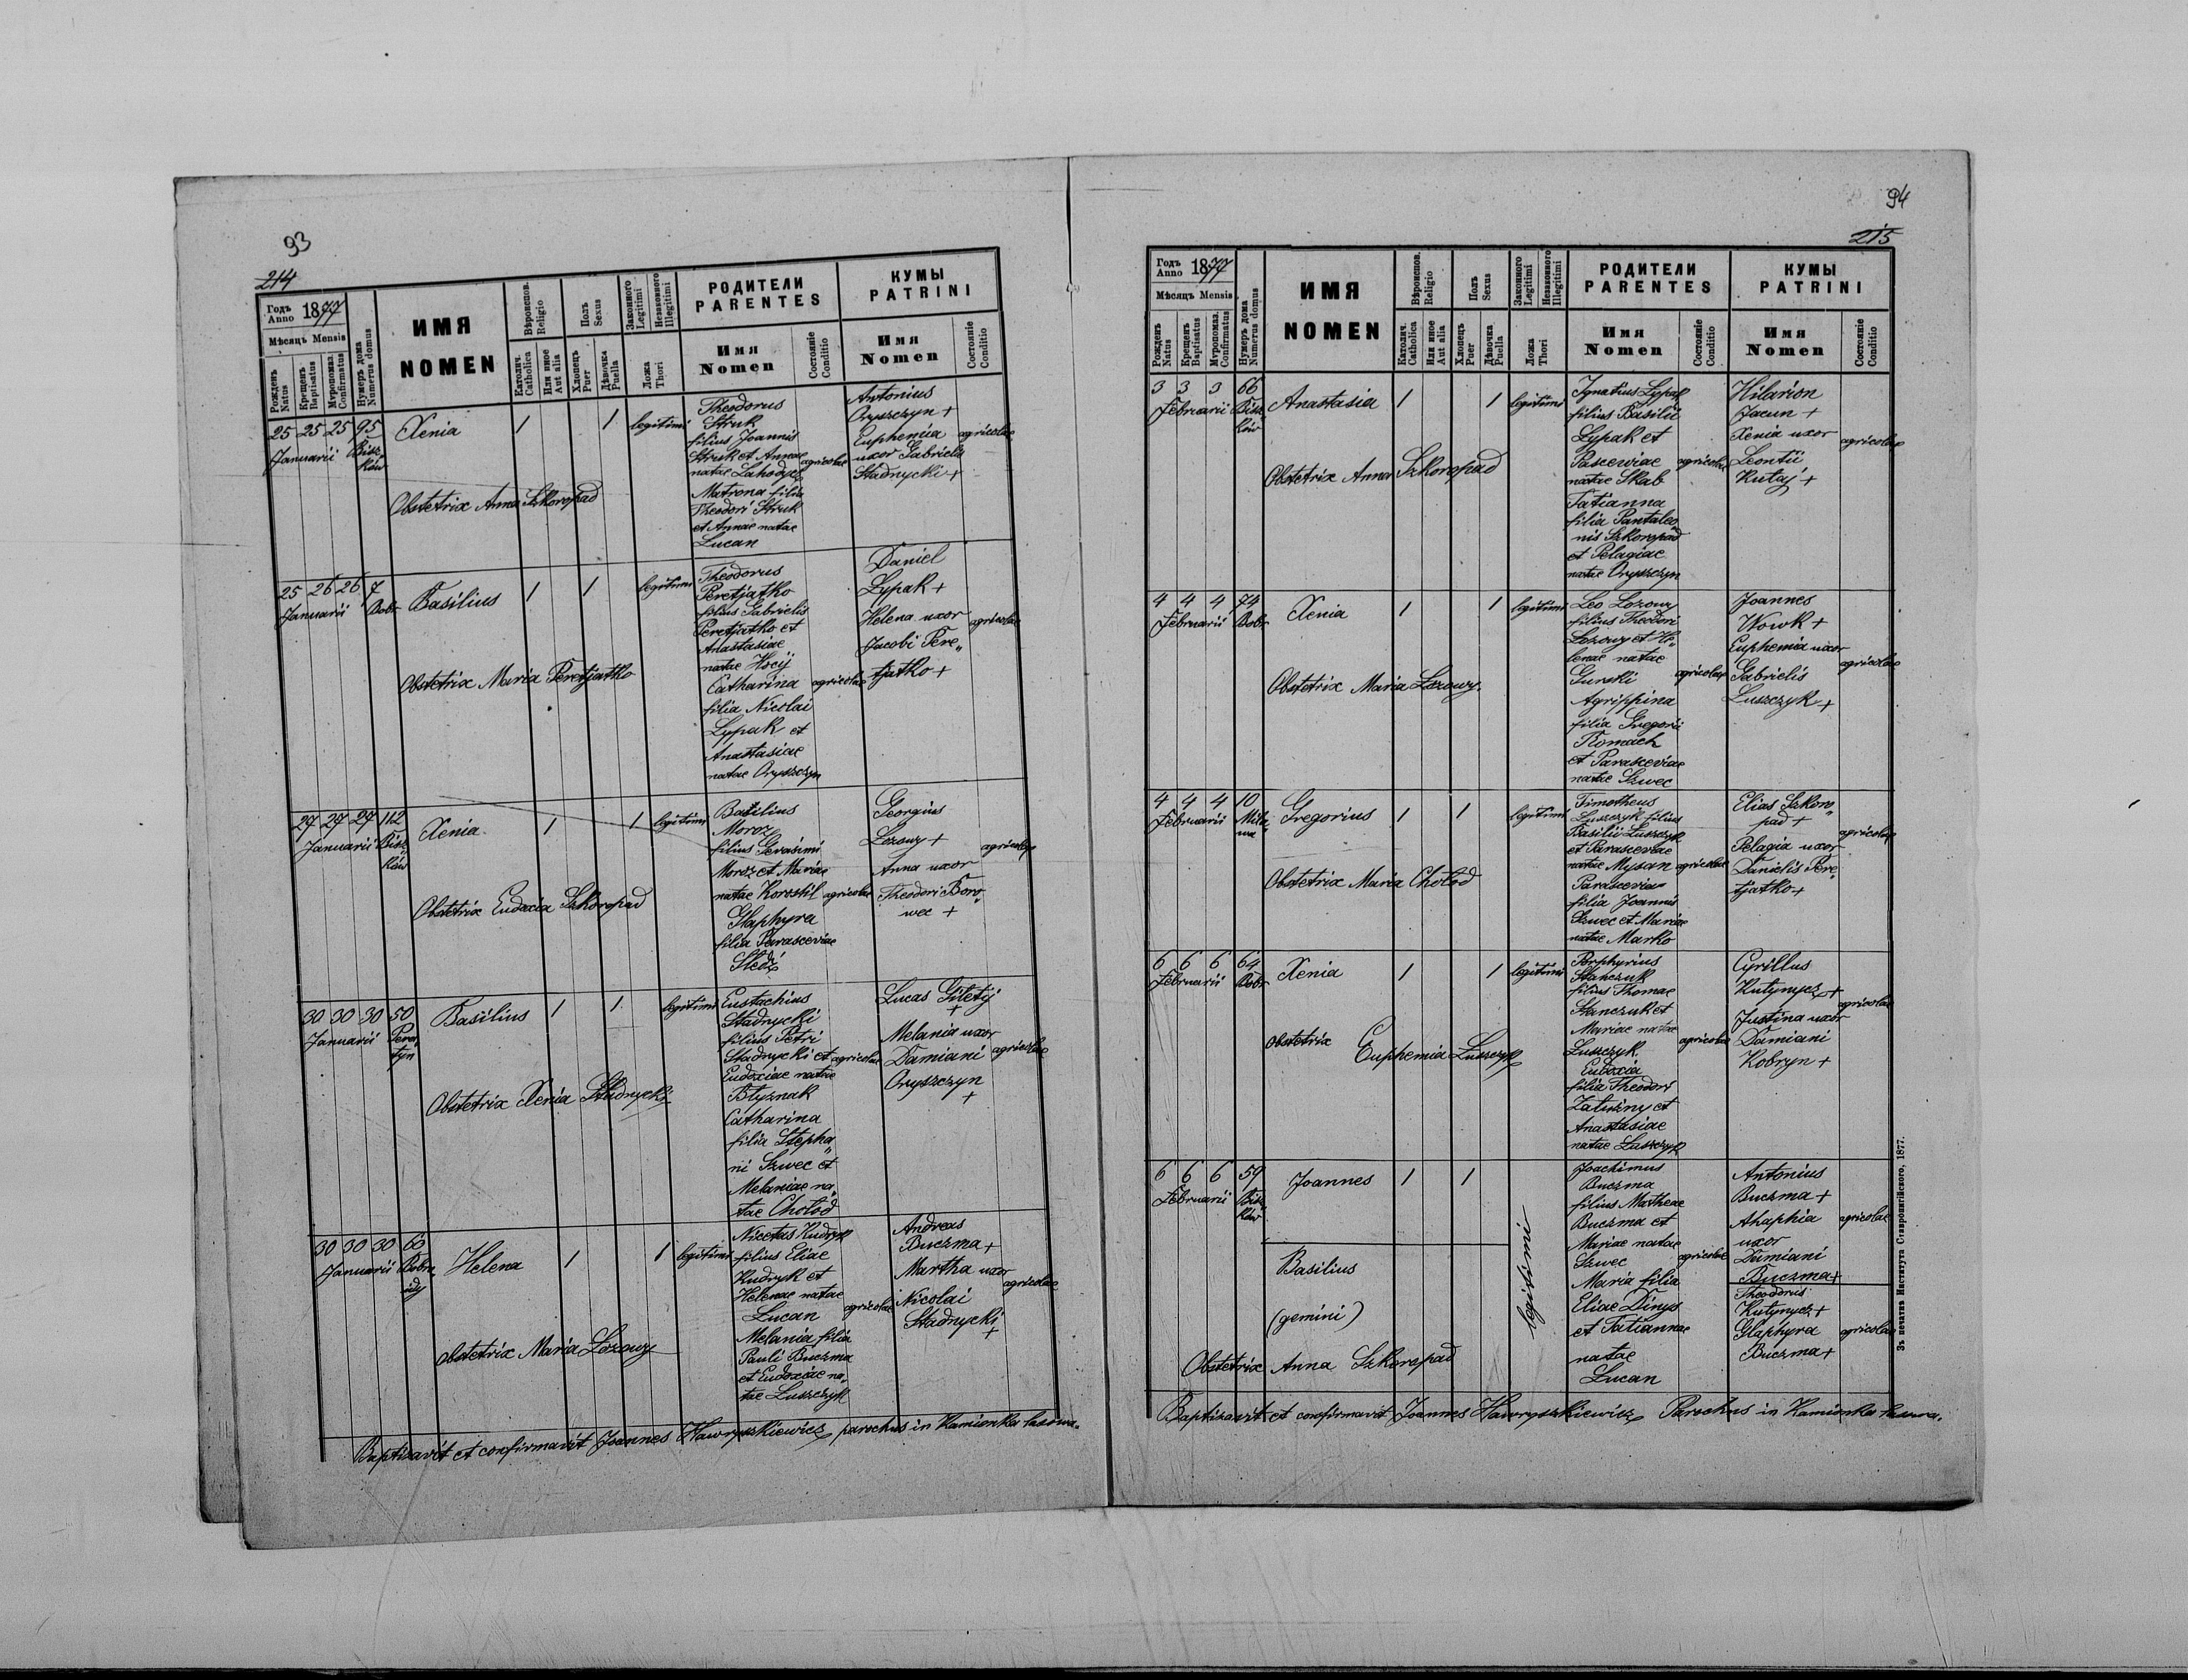 93
214
Годъ
Anno 1877
Мѣсяцъ Mensis
Рожденъ
Natus
Крещенъ
Baptisatus
Мѵропомаз.
Confirmatus
Нумеръ дома
Numerus domus
ИМЯ
NOMEN
Вѣроиспов.
Religio
Католич.
Catholica
Или иное
Aut alia
Полъ
Sexus
Хлопецъ
Puer
Дѣвочка
Puella
Законного
Legitimi
Незаконного
Illegitimi
Ложа
Thori
РОДИТЕЛИ
PARENTES
Имя
Nomen
Состояніе
Conditio
КУМЫ
PATRINI
Имя
Nomen
Состояніе
Conditio
25 25 25 95
Januarii Bisz
ków
Xenia
1 1 legitimi
Obstetrix Anna Szkoropad
Theodorus
Struk
filius Joannis
Struk et Annae
natae Lahodycz
Matrona filia
Theodori Struk
et Annae natae
Lucan
agricolae
Antonius
Oryszczyn +
Euphemia
uxor Gabrielis
Stadnycki +
agricolae
25 26 26 7
Januarii Bobr
Basilius
1 1 legitimi
Obstetrix Maria Peretjatko
Theodorus
Peretjatko
filius Gabrielis
Peretjatko et
Anastasiae
natae Hocij
Catharina
filia Nicolai
Lypak et
Anastasiae
natae Oryszczyn
agricolae
Daniel
Lypak +
Helena uxor
Jacobi Pere„
tjatko +
agricolae
27 27 27 112
Januarii Bisz
ków
Xenia
1 1 legitimi
Obstetrix Eudoxia Szkoropad
Basilius
Moroz
filius Gerasimi
Moroz et Mariae
natae Korostil
Glaphyra
filia Parasceviae
Sledź
agricolae
Georgius
Lozowy +
Anna uxor
Theodori Boro„
wec +
agricolae
30 30 30 50
Januarii Pere
tyn
Basilius
1 1 legitimi
Obstetrix Xenia Stadnycki
Eustachius
Stadnycki
filius Petri
Stadnycki et
Eudoxiae natae
Blyznak
Catharina
filia Stepha„
ni Szwec et
Melaniae na„
tae Chołod
agricolae
Lucas Giletij
+
Melania uxor
Damiani
Oryszczyn
+
agricolae
30 30 30 60
Januarii Bobro
idy
Helena
1 1 legitimi
Obstetrix Maria Lozowy
Nicetas Kudryk
filius Eliae
Kudryk et
Helenae natae
Lucan
Melania filia
Pauli Buczma
et Eudoxiae na„
tae Luszczyk
agricolae
Andreas
Buczma +
Martha uxor
Nicolai
Stadnycki
+
agricolae
Baptisavit et confirmavit Joannes Hawryszkiewicz parochus in Kamionka lasowa.
94
215
Годъ
Anno 1877
Мѣсяцъ Mensis
Рожденъ
Natus
Крещенъ
Baptisatus
Мѵропомаз.
Confirmatus
Нумеръ дома
Numerus domus
ИМЯ
NOMEN
Вѣроиспов.
Religio
Католич.
Catholica
Или иное
Aut alia
Полъ
Sexus
Хлопецъ
Puer
Дѣвочка
Puella
Законного
Legitimi
Незаконного
Illegitimi
Ложа
Thori
РОДИТЕЛИ
PARENTES
Имя
Nomen
Состояніе
Conditio
КУМЫ
PATRINI
Имя
Nomen
Состояніе
Conditio
3 3 3 66
Februarii Bisz
ków
Anastasia
1 1 legitimi
Obstetrix Anna Szkoropad
Ignatius Lypak
filius Basilii
Lypak et
Pascewiae
natae Skab
Tatianna
filia Pantaleo„
nis Szkoropad
et Pelagiae
natae Oryszczyn
agricolae
Hilarion
Jacun +
Xenia uxor
Leontii
Kutaj +
agricolae
4 4 4 74
Februarii Bobr
Xenia
1 1 legitimi
Obstetrix Maria Lozowy.
Leo Lozowy
filius Theodori
Lozowy et He„
lenae natae
Gunerli
Agrippina
filia Gregorii
Romach
et Parasceviae
natae Szwec
agricolae
Joannes
Wowk +
Euphemia uxor
Gabrielis
Luszczyk +
agricolae
4 4 4 10
Februarii
Gregorius
1 1 legitimi
Obstetrix Maria Chołod
Timotheus
Luszczyk filius
Basilii Luszczyk
et Parasceviae
natae Mysan
Parascevia
filia Joannis
Szwec et Mariae
natae Marko
agricolae
Elias Szkoro„
pad +
Pelagia uxor
Danielis Pere„
tjatko +
agricolae
6 6 6 64
Februarii Bobr
Xenia
1 1 legitimi
Obstetrix Euphemia Luszczyk
Porphyrius
Stanczuk
filius Thomae
Stanczuk et
Mariae natae
Luszczyk
Eudoxia
filia Theodori
Zaluzny et
Anastasiae
natae Luszczyk
agricolae
Cyrillus
Kutynycz +
Justina uxor
Damiani
Kobryn +
agricolae
6 6 6 59
Februarii Bisz
ków
Joannes
1 1
legitimi
Basilius
(gemini)
Obstetrix Anna Szkoropad
Joachimus
Buczma
filius Matheae
Buczma et
Mariae natae
Szwec
Maria filia
Eliae Dinys
et Tatiannae
natae
Lucan
agricolae
Antonius
Buczma +
Ahaphia
uxor
Damiani
Buczma +
agricolae
Theodorus
Kutynycz +
Glaphyra
Buczma +
agricolae
Baptisavit et confirmavit Joannes Hawryszkiewicz Parochus in Kamionka lasowa.
Зъ печатнѣ Института Ставропигійского, 1877.